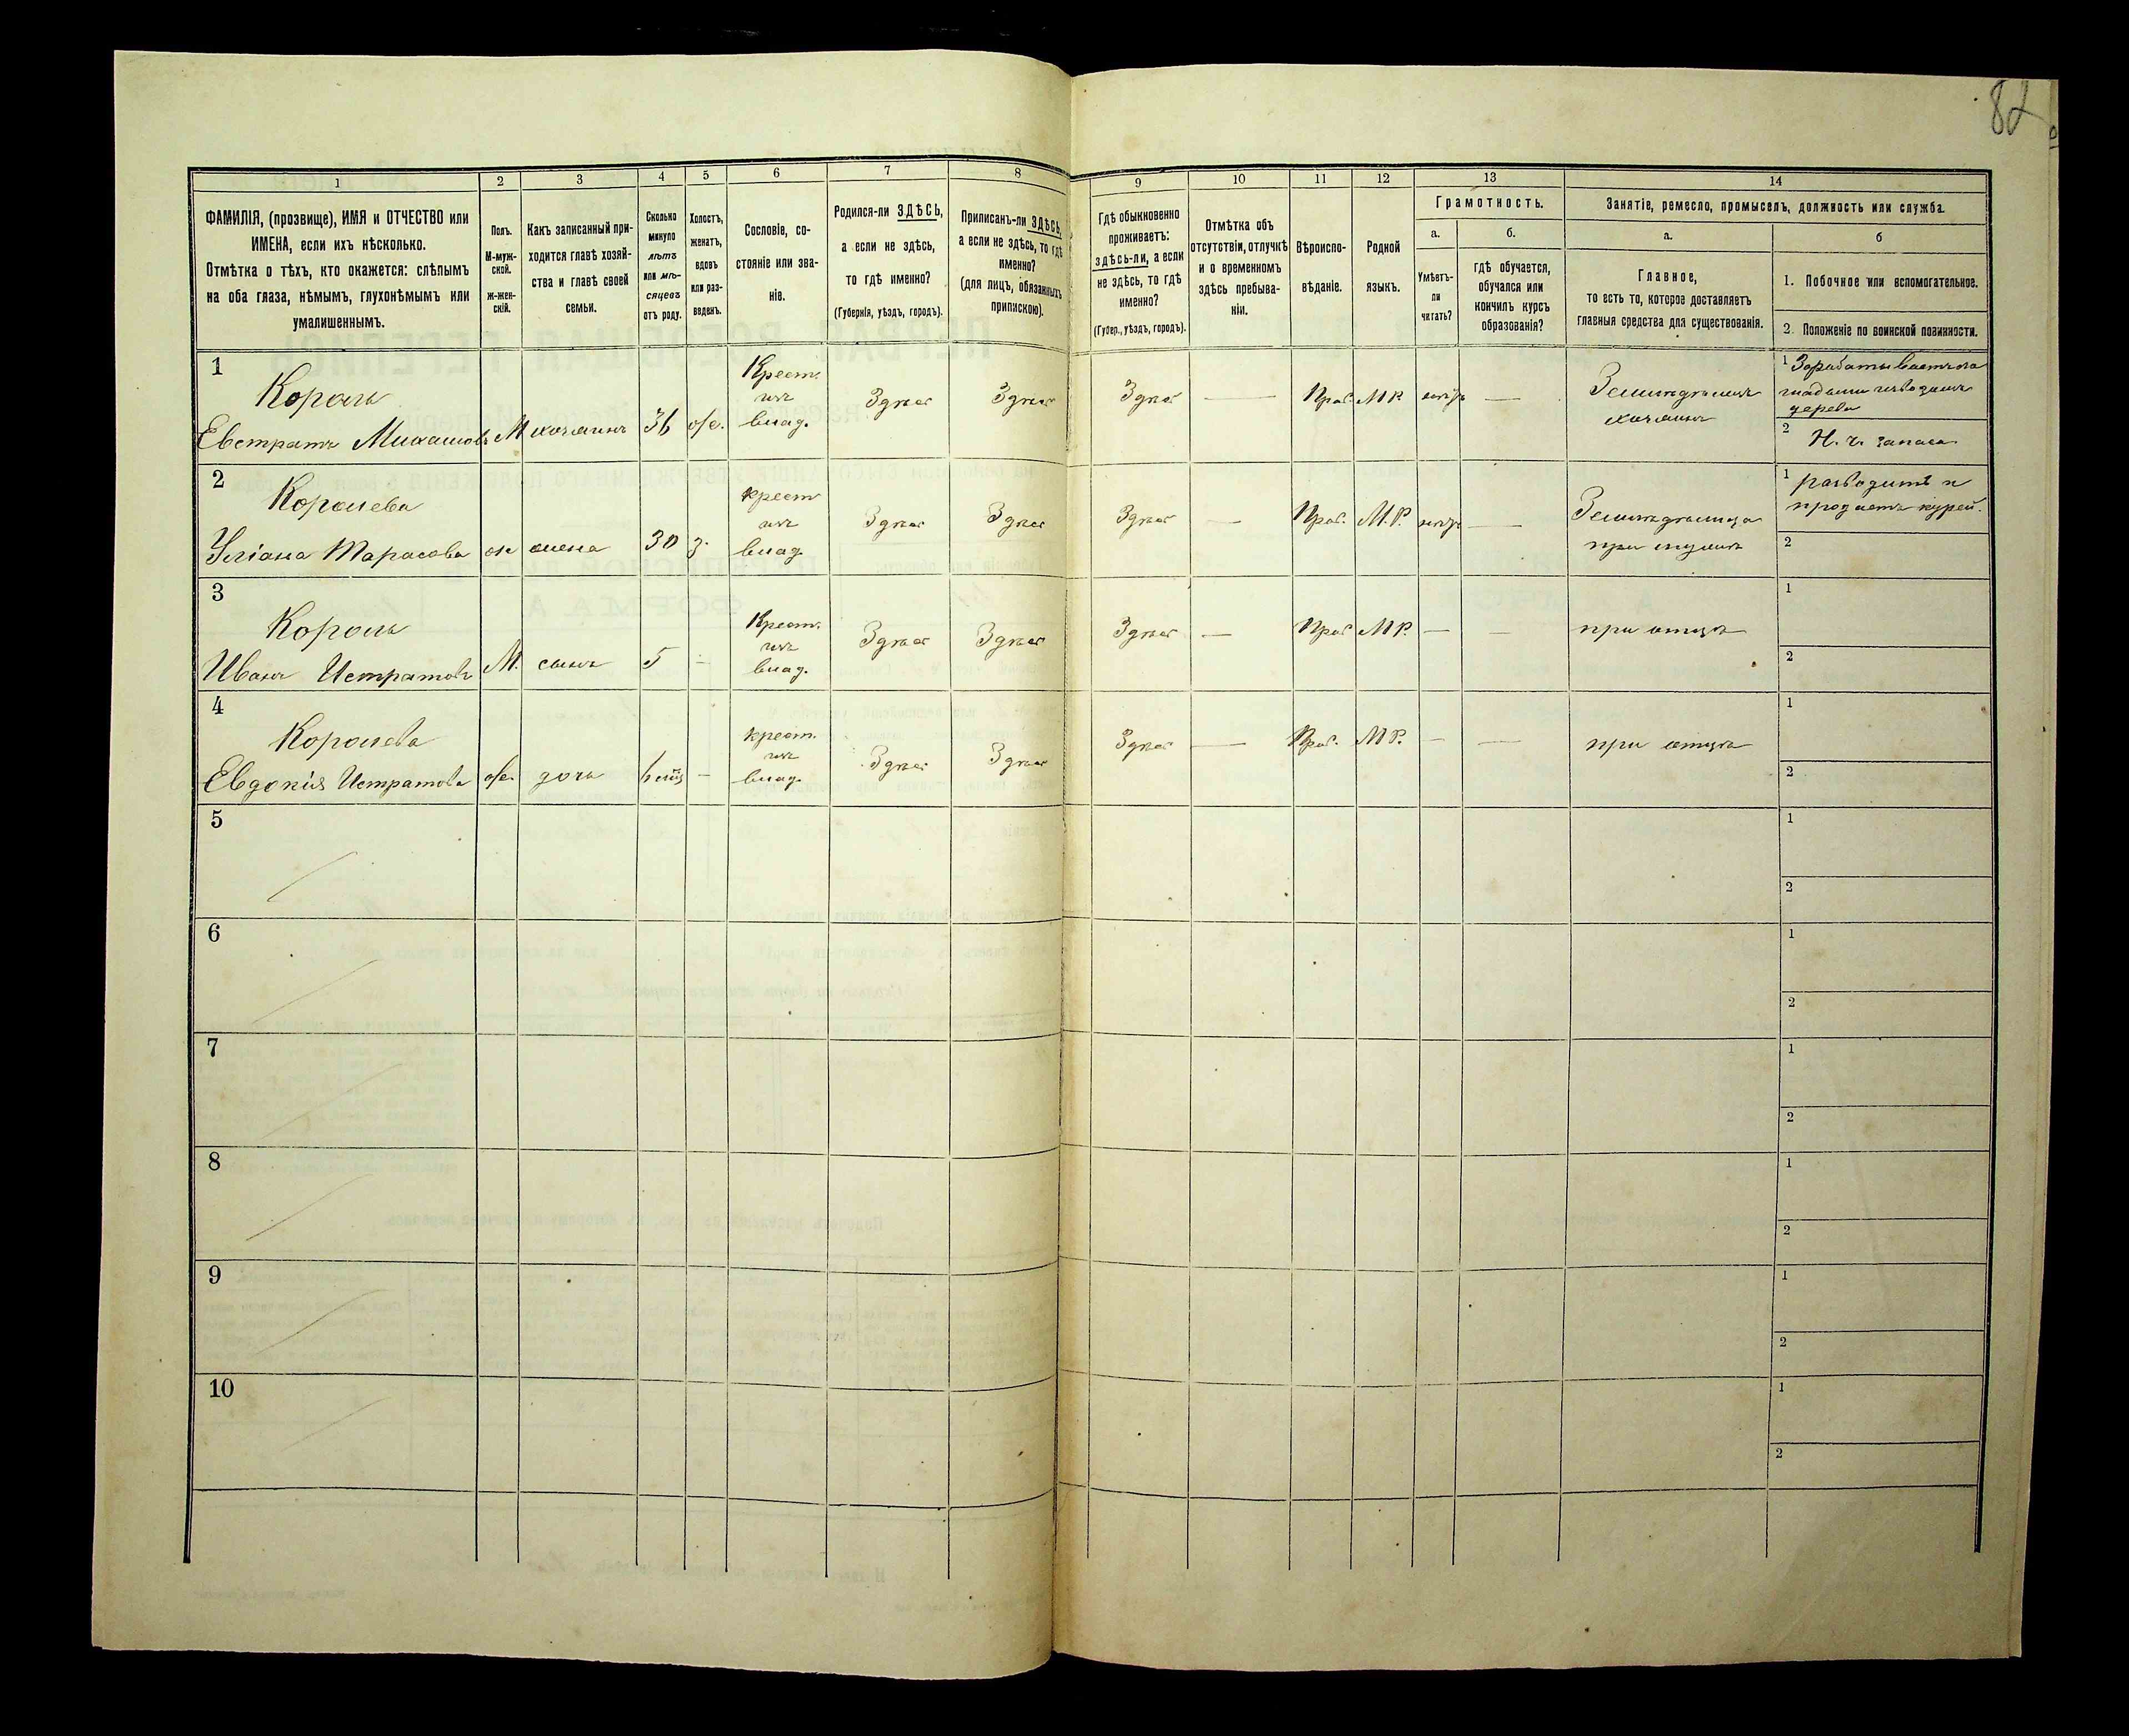 82
1 2 3 4 5 6 7 8 9 10 11 12 13 14
ФАМИЛІЯ, (прозвище), ИМЯ и ОТЧЕСТВО или
ИМЕНА, если ихъ нѣсколько.
Отмѣтка о тѣхъ, кто окажется: слѣпымъ
на оба глаза, нѣмымъ, глухонѣмымъ или
умалишеннымъ.
Полъ.
М-муж-
ской.
Ж-жен-
скій.
Какъ записанный при-
ходится главѣ хозяй-
ства и главѣ своей
семьи.
Сколько
минуло
лѣтъ
или мѣ-
сяцевъ
отъ роду.
Холостъ,
женатъ,
вдовъ
или раз-
веденъ.
Сословіе, со-
стояніе или зва-
ніе.
Родился-ли ЗДѢСЬ,
а если не здѣсь,
то гдѣ именно?
(Губернія, уѣздъ, городъ).
Приписанъ-ли ЗДѢСЬ,
а если не здѣсь, то гдѣ
именно?
(для лицъ, обязанныхъ
припискою).
Гдѣ обыкновенно
проживаетъ:
здѣсь-ли, а если
не здѣсь, то гдѣ
именно?
(Губер., уѣздъ, городъ).
Отмѣтка объ
отсутствіи, отлучкѣ
и о временномъ
здѣсь пребыва-
ніи.
Вѣроиспо-
вѣданіе.
Родной
языкъ.
Грамотность.
а.
Умѣетъ-
ли
читать?
б.
гдѣ обучается,
обучался или
кончилъ курсъ
образованія?
Занятіе, ремесло, промыселъ, должность или служба.
а.
Главное,
то есть то, которое доставляетъ
главныя средства для существованія.
б
1. Побочное или вспомогательное.
2. Положеніе по воинской повинности.
1
Король
Евстратъ Михаиловъ
М
хозяинъ
36
ж.
Крест.
изъ
влад.
Здѣсь
Здѣсь
Здѣсь
—
Прав.
МР.
—
Земледѣлецъ
хозяинъ
1
дерева
2
Н. ч. запаса
2
Королева
Уліана Тарасова
ж
жена
30
з.
крест
изъ
влад.
Здѣсь
Здѣсь
Здѣсь
—
Прав.
М.Р.
—
Земледѣлица
при мужѣ
1 разводитъ и
продаетъ курей.
2
3
Король
Иванъ Истратовъ
М.
сынъ
5
—
Крест.
изъ
влад.
Здѣсь
Здѣсь
Здѣсь
—
Прав
МР.
—
—
при отцѣ
1
2
4
Королева
Евдокія Истратова
ж.
дочь
—
крест.
изъ
влад.
Здѣсь
Здѣсь
Здѣсь
—
Прав.
МР.
—
—
при отцѣ
1
2
5
1
2
6
1
2
7
1
2
8
1
2
9
1
2
10
1
2